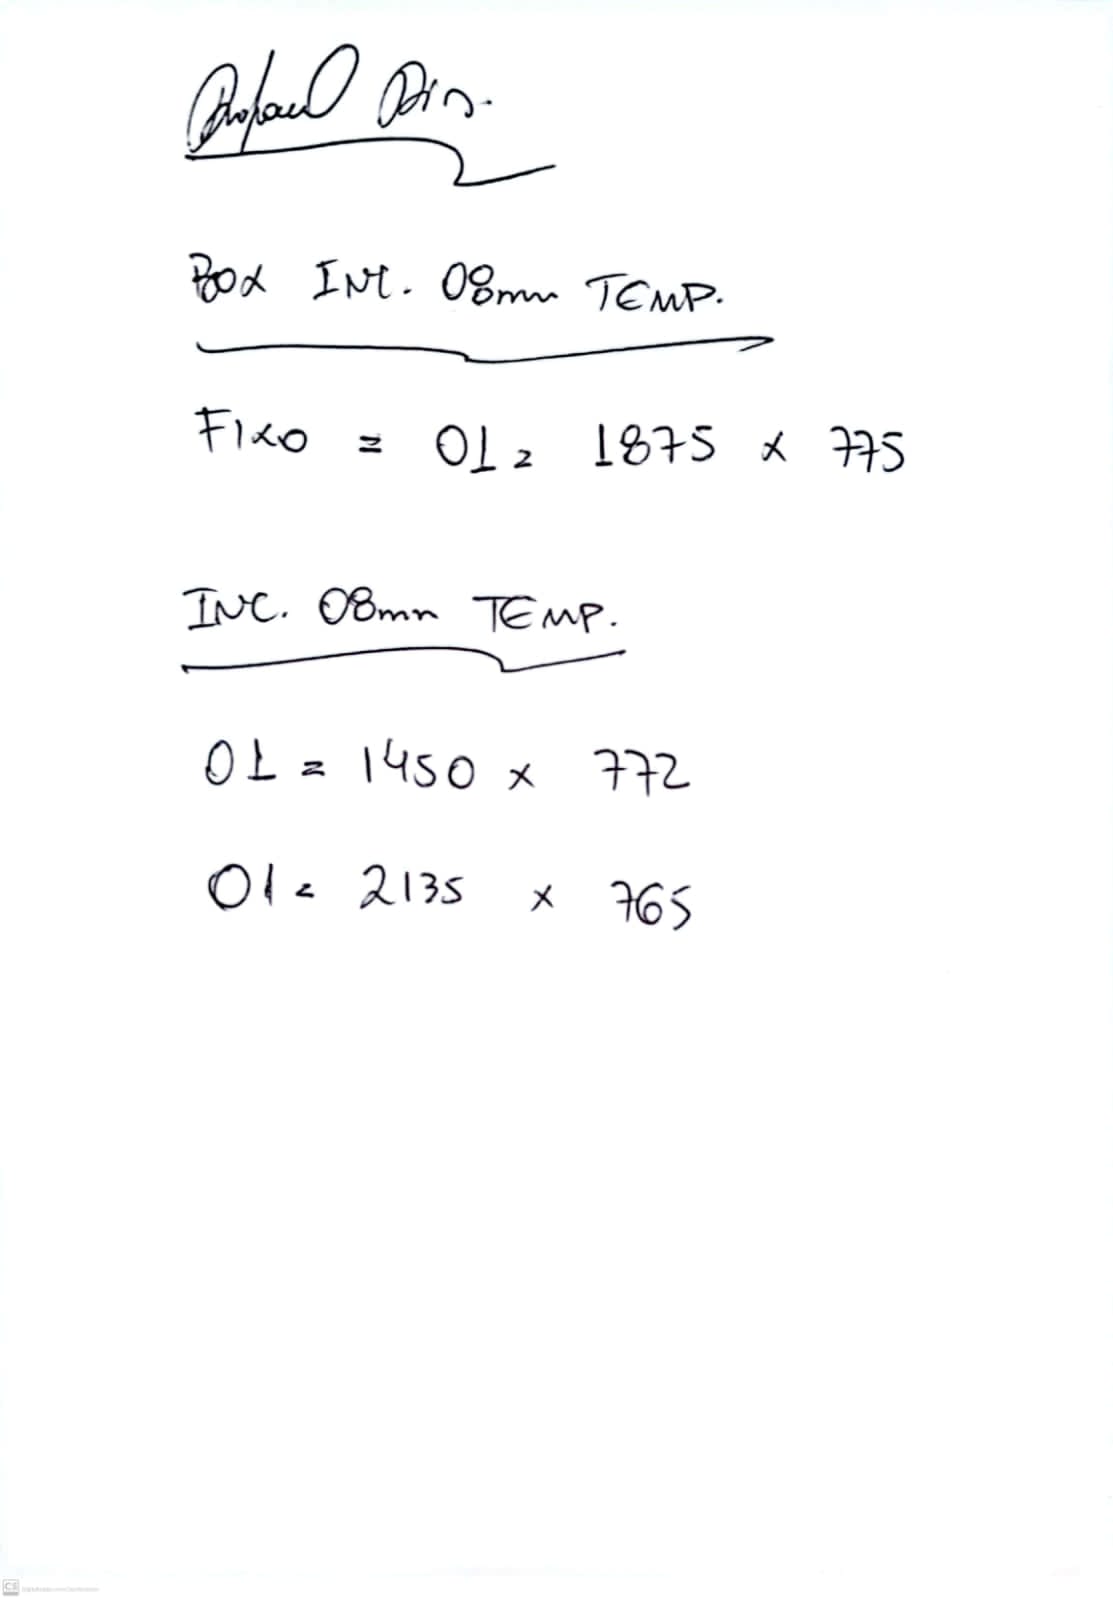 Rafael Dir.
BOX INC. 08mm TEMP.
FIXO = 01 = 1875 x 775
INC. 08mm TEMP.
01 = 1450 x 772
01 = 2135 x 765
CS